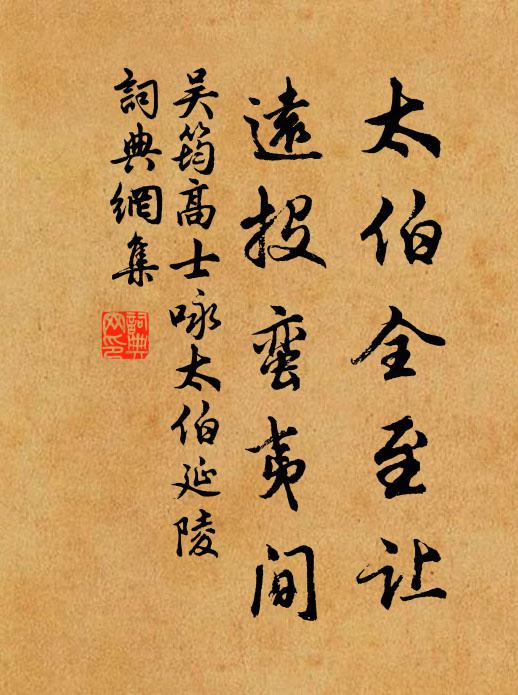 太伯全至让
遠投蛮夷间
吴筠高士咏太伯延陵
詞典網集
詞典网印